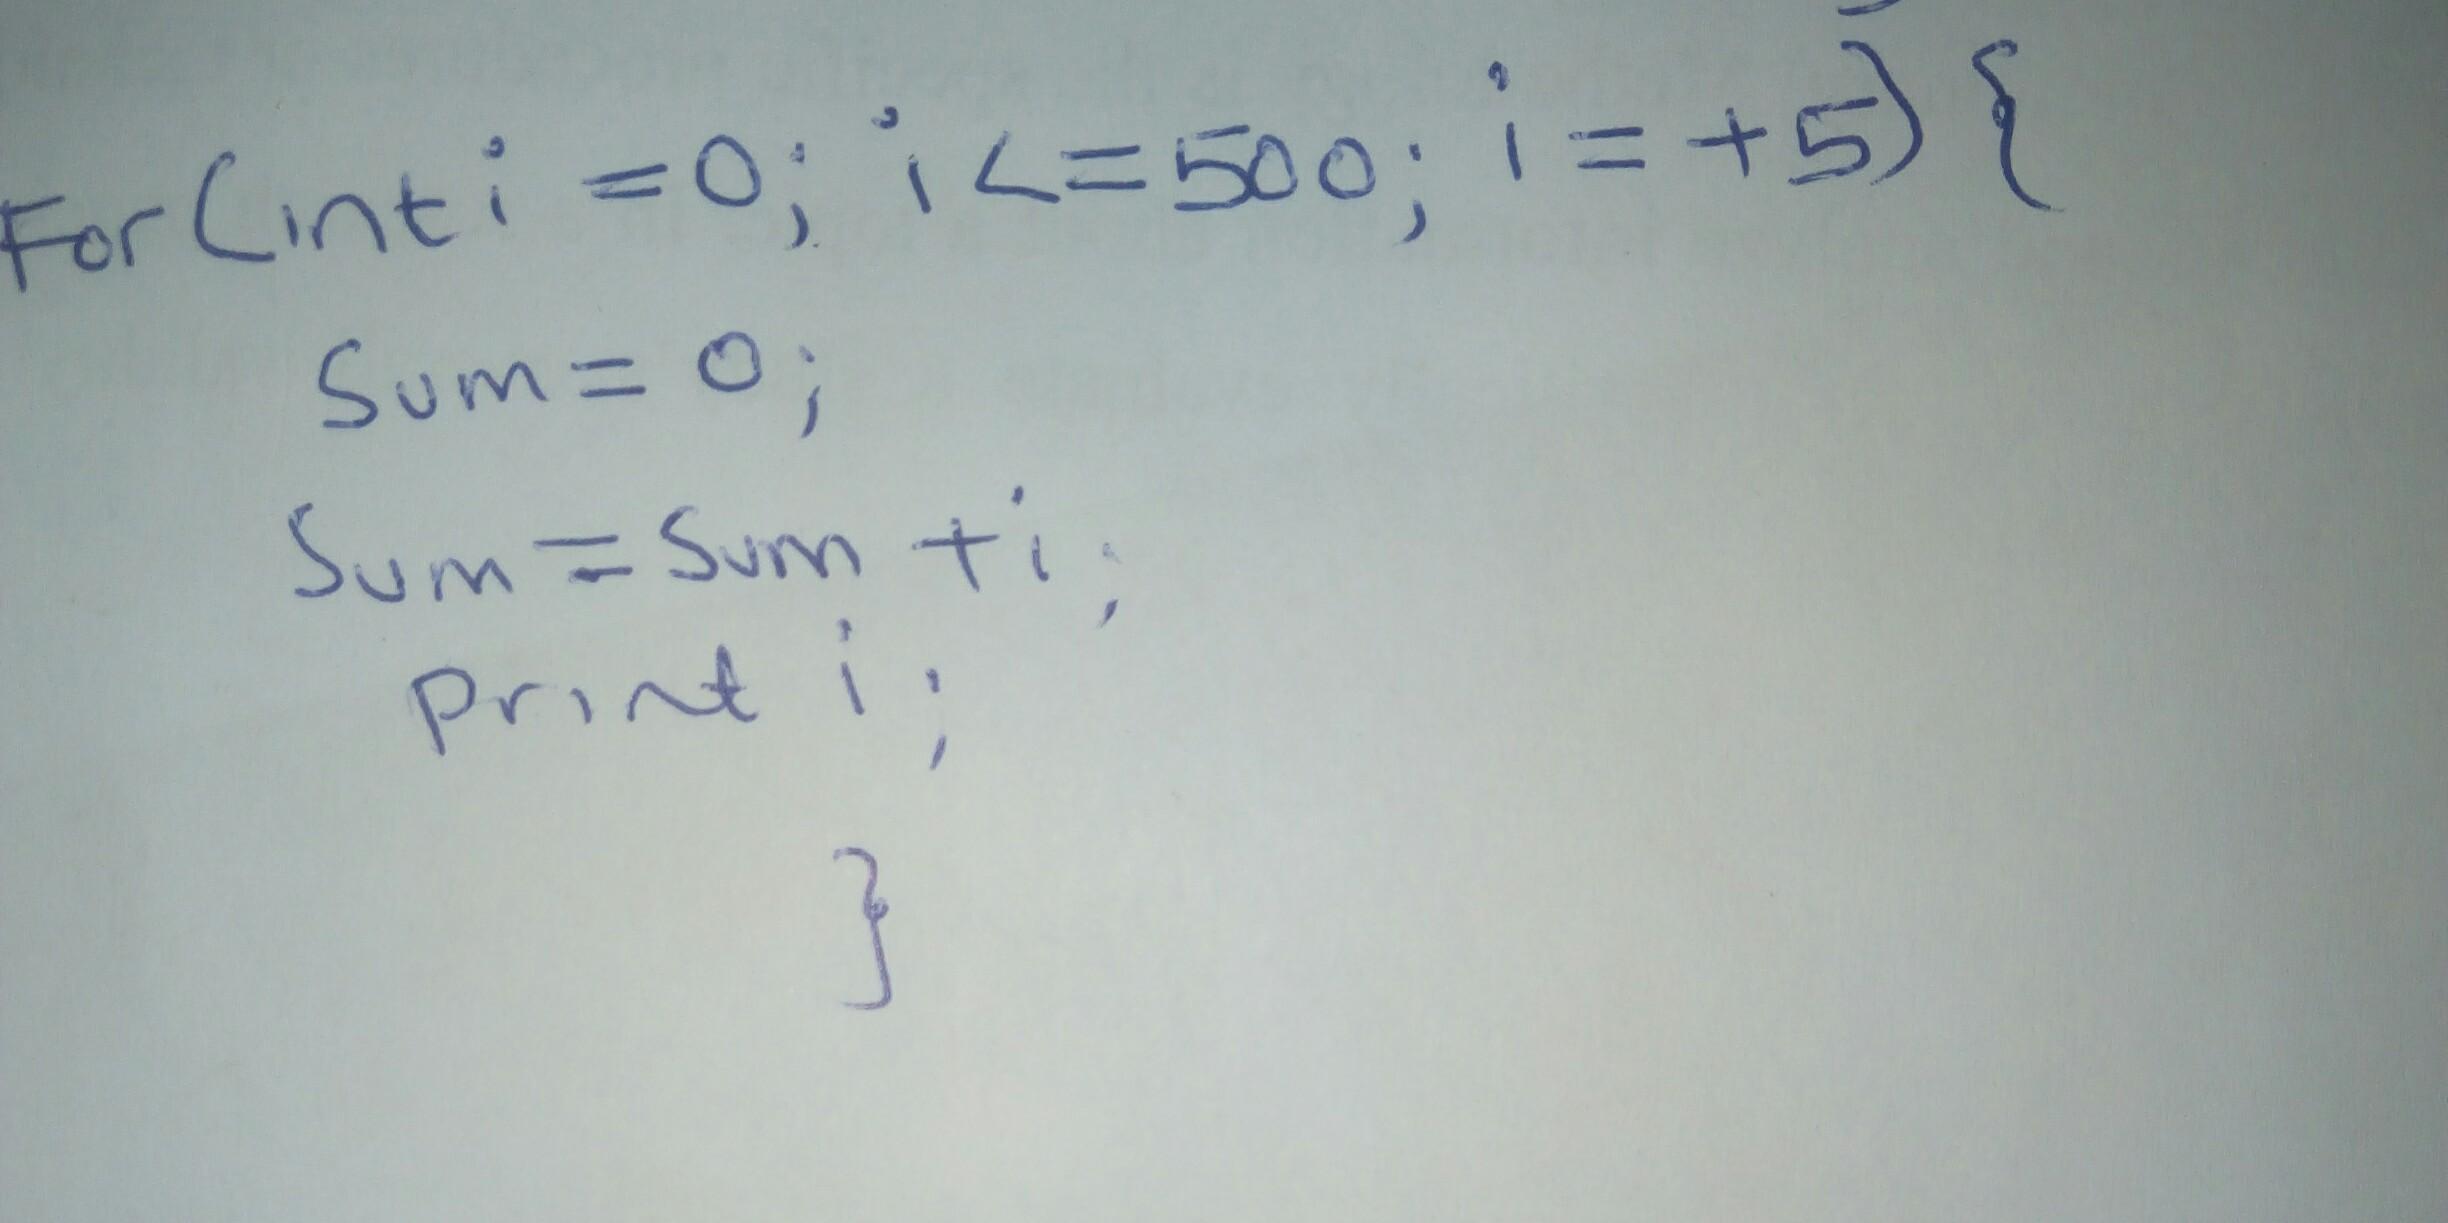 For(int i =0; i <=500; i = +5) {
Sum= 0;
Sum = Sum +i;
print i;
}